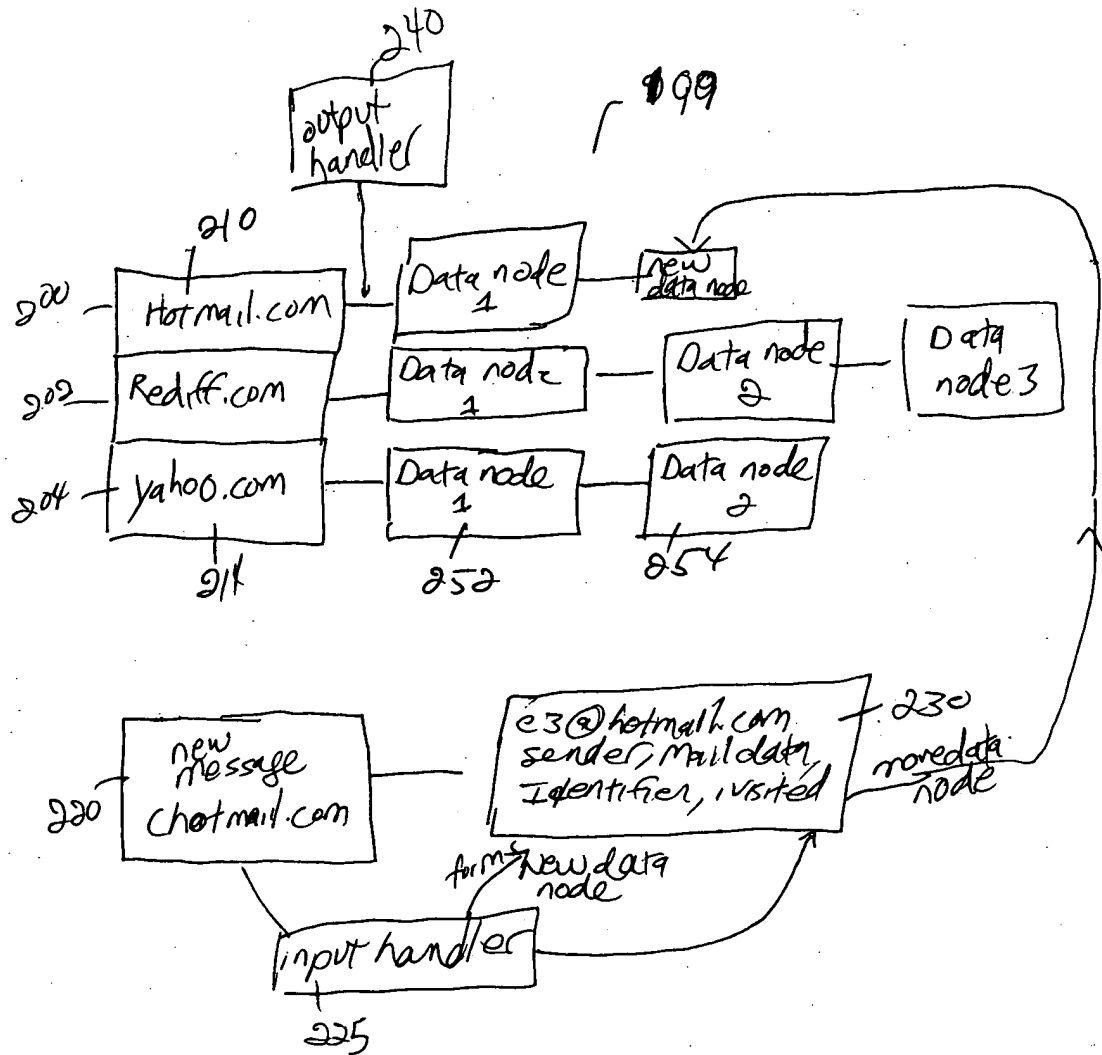 240
output
handler
199
210
200
Hotmail.com
Data node
1
new
data node
202
Rediff.com
Data node
1
Data node
2
Data
node 3
204
yahoo.com
Data node
1
Data node
2
214
252
254
new
message
chotmail.com
220
e3@hotmail.com
sender, Mail data,
Identifier, visited
230
move data
node
forms
New data
node
input handler
225